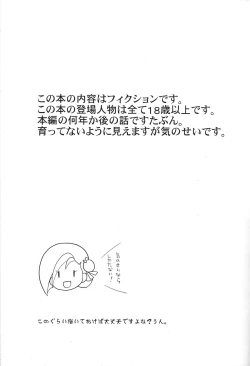 この本の内容はフィクションです。
この本の登場人物は全て18歳以上です。
本編の何年か後の話ですたぶん。
育ってないように見えますが気のせいです。
このぐらい描いておけば大丈夫ですよね?うん。